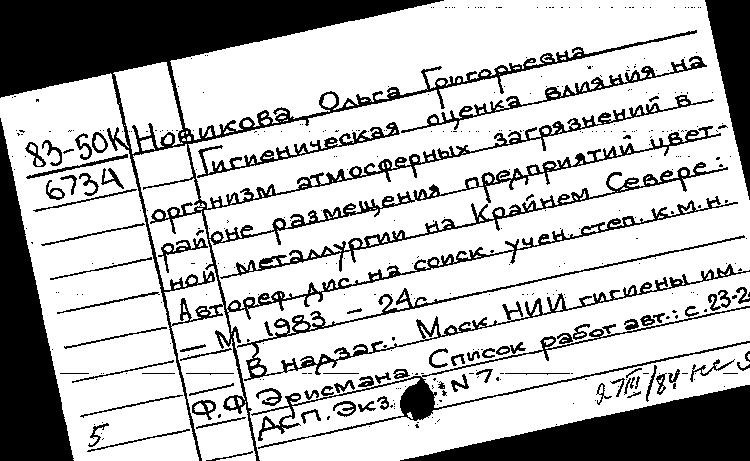 83-50К
6734
Новикова, Ольга Григорьевна
Гигиеническая оценка влияния на
организм атмосферных загрязнений в
районе размещения предприятий цвет-
ной металлургии на Крайнем Севере:
Автореф. дис. на соиск. учен. степ. к.м.н.
— М., 1983. – 24с.
В надзаг.: Моск. НИИ гигиены им.
Ф.Ф. Эрисмана. Список работ авт.: с.23-2
ДСП. Экз. N 7.
27 III/84
5